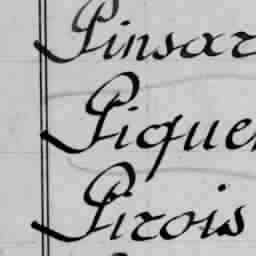 Pinsar
Pique
Pirois